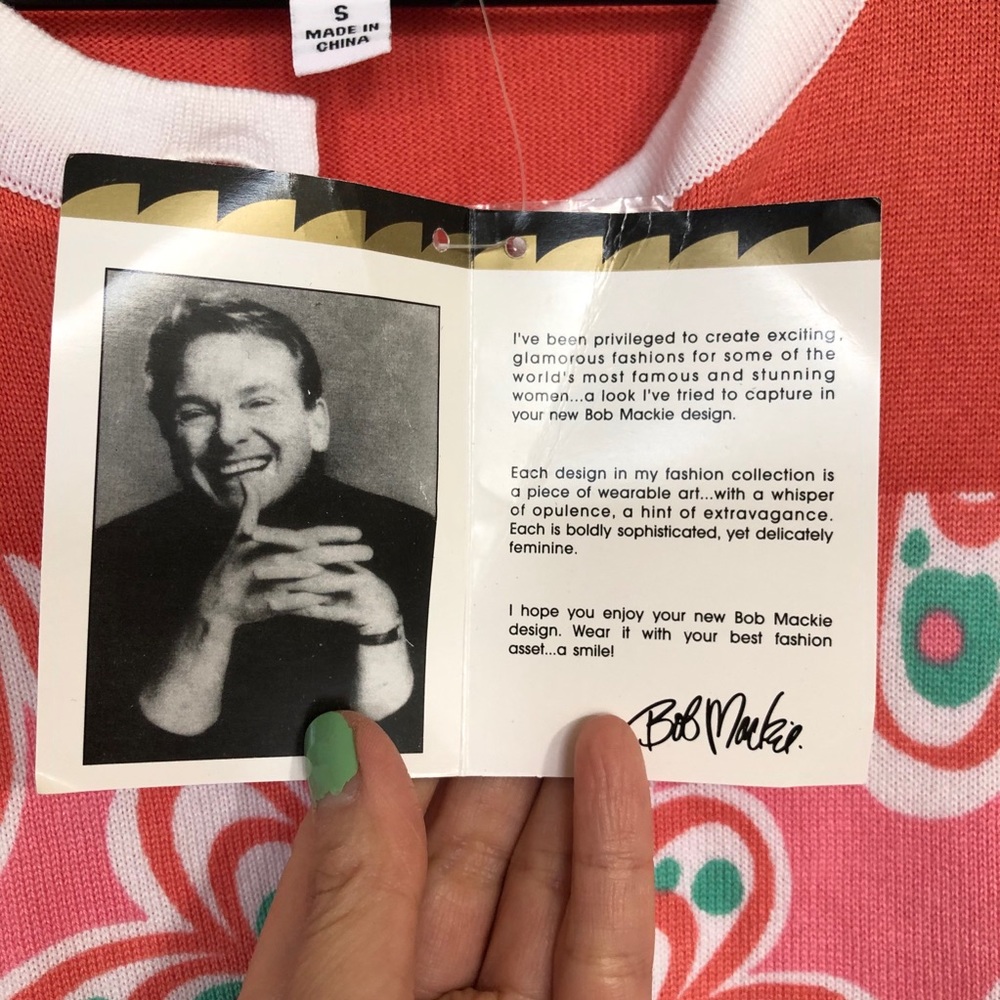 S
MADE IN
CHINA
I've been privileged to create exciting,
glamorous fashions for some of the
world's most famous and stunning
women...a look I've tried to capture in
your new Bob Mackie design.
Each design in my fashion collection is
a piece of wearable art...with a whisper
of opulence, a hint of extravagance.
Each is boldly sophisticated, yet delicately
feminine.
I hope you enjoy your new Bob Mackie
design. Wear it with your best fashion
asset...a smile!
Bob Mackie.